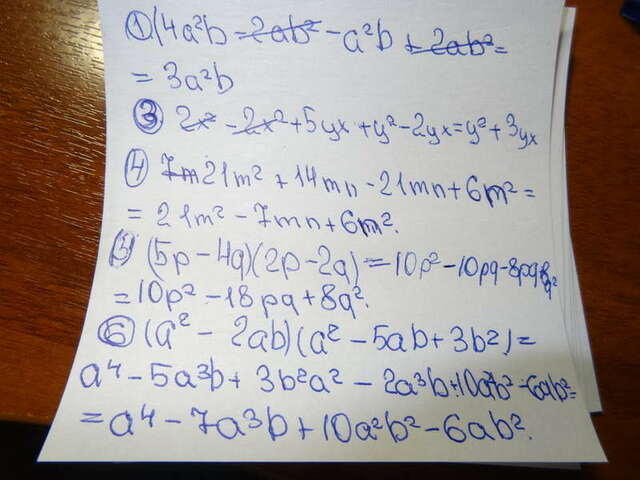 ① (4a²b - 2ab² - a²b + 2ab² =
= 3a²b
③ 2x² - 2x² + 5yx + y² - 2yx = y² + 3yx
④ 7m 21m² + 14mn - 21mn + 6m² =
= 21m² - 7mn + 6m².
⑤ (5p - 4q)(2p - 2q) = 10p² - 10pq - 8pq + 8q²
= 10p² - 18pq + 8q².
⑥ (a² - 2ab)(a² - 5ab + 3b²) =
a⁴ - 5a³b + 3b²a² - 2a³b + 10a²b² - 6ab² =
= a⁴ - 7a³b + 10a²b² - 6ab².